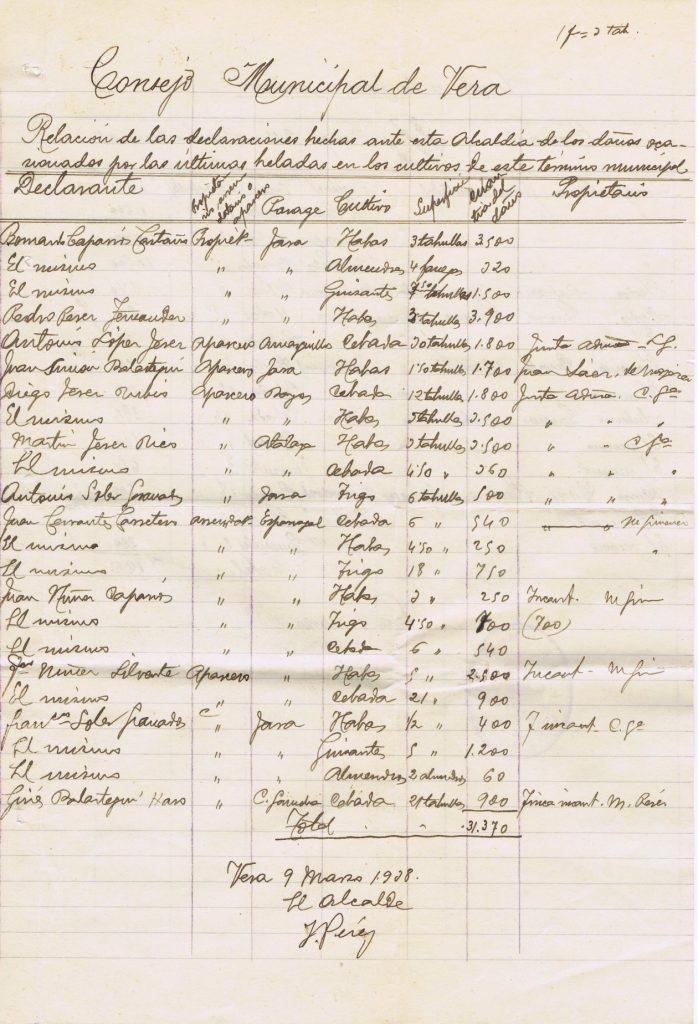 1 f = 2 tah.
Consejo Municipal de Vera
Relación de las declaraciones hechas ante esta Alcaldía de los daños oca-
sionados por las últimas heladas en los cultivos de este término municipal
Declarante Parage Cultivo Superficie Cuantía del daño Propietario
Caparrós Castaño Propiét- Jara Habas 3 tahullas 3.500
El mismo " " Almendros 4 320
El mismo " " Guisantes tahullas 1.500
Pedro Perez Fernandez " " Habas tahullas 3.900
Antonio López Jerez Aparcero Cebada 30 tahullas 1.800 Junta
Juan Balastegui Aparcero Jara Habas 1'50 tahullas 1.700 Juan
Diego Jerez Rubio Aparcero Cebada 12 tahullas 1.800 Junta C. Gª
El mismo " " Habas tahullas 2.500 " " "
Martin Jerez Rico " Atalaya Habas 3 tahullas 2.500 " " C Gª
El mismo " " Cebada 4'50 " 360 " " "
Antonio Soler Granados " Jara Trigo 6 tahullas 500 " " "
Juan Cervantes Carretero arrendat- Cebada 6 " 540
El mismo " " Habas 4'50 " 250 "
El mismo " " Trigo 18 " 750
Juan Núñez Caparrós " " Habas 3 " 250 Incaut.
El mismo " " Trigo 4'50 " 700 (700)
El mismo " " Cebada 6 " 540
Núñez Silvente Aparcero " Habas 5 " 2.500 Incaut-
El mismo " " Cebada 21 " 900
Soler Granados " Jara Habas 1/2 " 400 F incaut- C. Gª
El mismo " " Guisantes 5 " 1.200
El mismo " " Almendros 2 almendros 60
Ginés Balastegui Haro " C. Garrucha Cebada 21 tahullas 900 Finca incaut. M. Perés
Total . . " 31.370
Vera 9 Marzo 1.938.
El Alcalde
J. Pérez